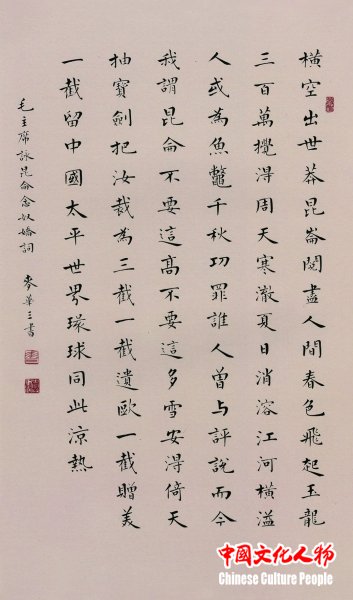 橫空出世莽昆崙閱盡人間春色飛起玉龍
三百萬攪得周天寒澈夏日消溶江河橫溢
人或為魚鼈千秋功罪誰人曾与評說而今
我謂昆侖不要這高不要這多雪安得倚天
抽寶劍把汝裁為三截一截遺歐一截贈美
一截留中國太平世界環球同此涼熱
毛主席詠昆侖念奴嬌詞 麥華三書
中国文化人物
Chinese Culture People